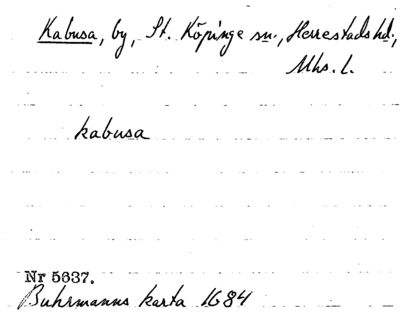 Kabusa, by, St. Köpinge sn., Herrestads hd.,
Mhs. l.
kabusa
Nr 5637.
Buhrmanns karta 1684